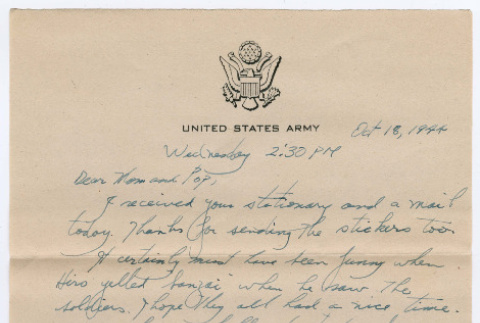 UNITED STATES ARMY
Oct 18, 1944
Wednesday 2:30 PM
Dear Mom and Pop,
I received your stationary and a mail
today. Thanks for sending the stickers too.
It certainly must have been funny when
Hiro yelled "banzai" when he saw the
soldiers. I hope they all had a nice time.